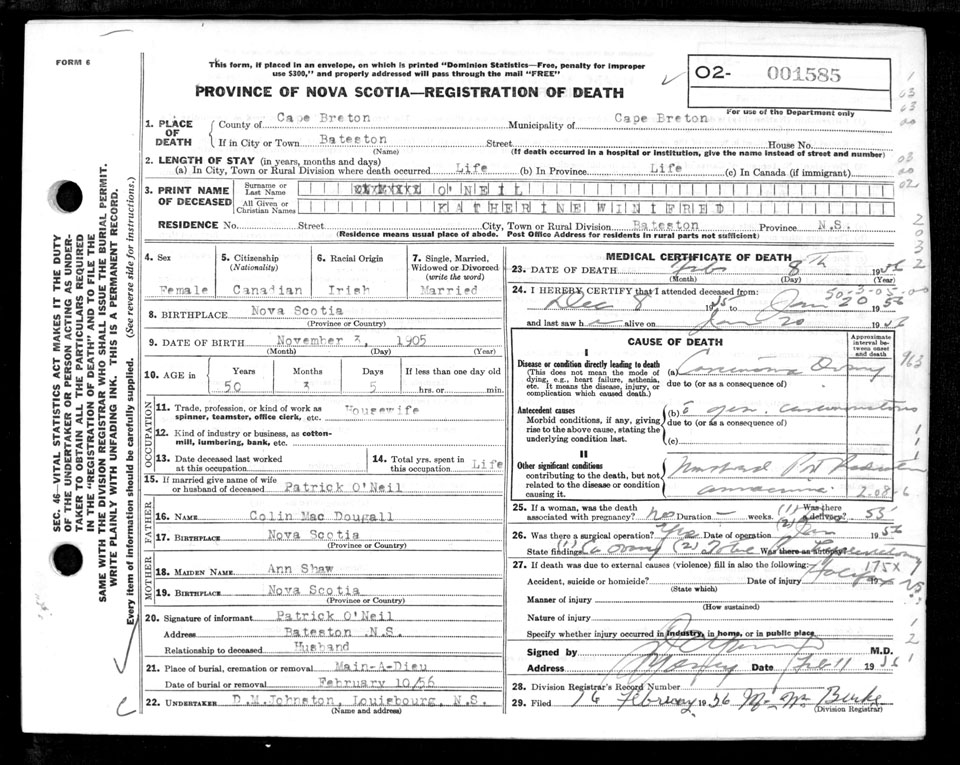 FORM 6
This form, if placed in an envelope, on which is printed "Dominion Statistics—Free, penalty for improper
use $300," and properly addressed will pass through the mail "FREE"
PROVINCE OF NOVA SCOTIA—REGISTRATION OF DEATH
02- 001585
For use of the Department only
SEC. 46—VITAL STATISTICS ACT MAKES IT THE DUTY
OF THE UNDERTAKER OR PERSON ACTING AS UNDER-
TAKER TO OBTAIN ALL THE PARTICULARS REQUIRED
IN THE "REGISTRATION OF DEATH" AND TO FILE THE
SAME WITH THE DIVISION REGISTRAR WHO SHALL ISSUE THE BURIAL PERMIT.
WRITE PLAINLY WITH UNFADING INK. THIS IS A PERMANENT RECORD.
Every item of information should be carefully supplied. (See reverse side for instructions.)
1. PLACE OF DEATH
County of Cape Breton Municipality of Cape Breton
If in City or Town Bateston Street House No.
(Name) (If death occurred in a hospital or institution, give the name instead of street and number)
2. LENGTH OF STAY (in years, months and days)
(a) In City, Town or Rural Division where death occurred Life (b) In Province Life (c) In Canada (if immigrant)
3. PRINT NAME OF DECEASED
Surname or Last Name O'NEIL
All Given or Christian Names KATHERINE WINIFRED
RESIDENCE No. Street City, Town or Rural Division Bateston Province N.S.
(Residence means usual place of abode. Post Office Address for residents in rural parts not sufficient)
4. Sex Female
5. Citizenship (Nationality) Canadian
6. Racial Origin Irish
7. Single, Married, Widowed or Divorced (write the word) Married
8. BIRTHPLACE Nova Scotia
(Province or Country)
9. DATE OF BIRTH November 3, 1905
(Month) (Day) (Year)
10. AGE in Years Months Days If less than one day old
50 3 5 hrs. or min.
OCCUPATION
11. Trade, profession, or kind of work as spinner, teamster, office clerk, etc. Housewife
12. Kind of industry or business, as cotton-mill, lumbering, bank, etc.
13. Date deceased last worked at this occupation
14. Total yrs. spent in this occupation Life
15. If married give name of wife or husband of deceased Patrick O'Neil
FATHER
16. NAME Colin Mac Dougall
17. BIRTHPLACE Nova Scotia
(Province or Country)
MOTHER
18. MAIDEN NAME Ann Shaw
19. BIRTHPLACE Nova Scotia
(Province or Country)
20. Signature of informant Patrick O'Neil
Address Bateston N.S.
Relationship to deceased Husband
21. Place of burial, cremation or removal Main-A-Dieu
Date of burial or removal February 10/56
22. UNDERTAKER D.M.Johnston, Louisbourg, N.S.
(Name and address)
MEDICAL CERTIFICATE OF DEATH
23. DATE OF DEATH Feb 8th 1956
(Month) (Day) (Year)
24. I HEREBY CERTIFY that I attended deceased from:
50-3-05-00
Dec 8 1955 to Jan 20 1956
and last saw h alive on Jan 20 1956
CAUSE OF DEATH
Approximate interval between onset and death
I
Disease or condition directly leading to death
(This does not mean the mode of dying, e.g., heart failure, asthenia, etc. It means the disease, injury, or complication which caused death.)
(a) Carcinoma Ovary
due to (or as a consequence of)
Antecedent causes
Morbid conditions, if any, giving rise to the above cause, stating the underlying condition last.
(b) gen. carcinomatosis
due to (or as a consequence of)
(c)
II
Other significant conditions
contributing to the death, but not related to the disease or condition causing it.
25. If a woman, was the death associated with pregnancy? no Duration — weeks. (1) Was there (2) a delivery?
26. Was there a surgical operation? Yes Date of operation Jan 1956
State findings (1) Ca Ovary (2) Was there an autopsy?
27. If death was due to external causes (violence) fill in also the following: 175X
Accident, suicide or homicide? Date of injury 19
(State which)
Manner of injury
(How sustained)
Nature of injury
Specify whether injury occurred in industry, in home, or in public place
Signed by M.D.
Address Date Feb 11 1956
28. Division Registrar's Record Number
29. Filed 16 February 1956 Burke
(Division Registrar)